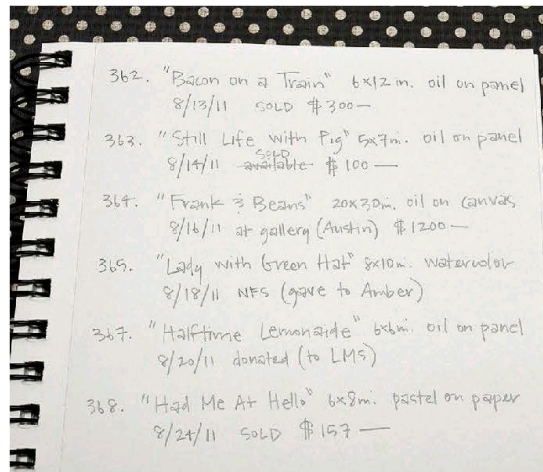 362. "Bacon on a Train" 6x12 in. oil on panel
8/13/11 SOLD $300—
363. "Still Life with Pig" 5x7in. oil on panel
8/14/11 available SOLD $100—
364. "Frank & Beans" 20x30in. oil on canvas
8/16/11 at gallery (Austin) $1200—
365. "Lady with Green Hat" 8x10in. watercolor
8/18/11 NFS (gave to Amber)
367. "Halftime Lemonaide" 6x6in. oil on panel
8/20/11 donated (to LMS)
368. "Had Me At Hello" 6x8in. pastel on paper
8/24/11 SOLD $157—